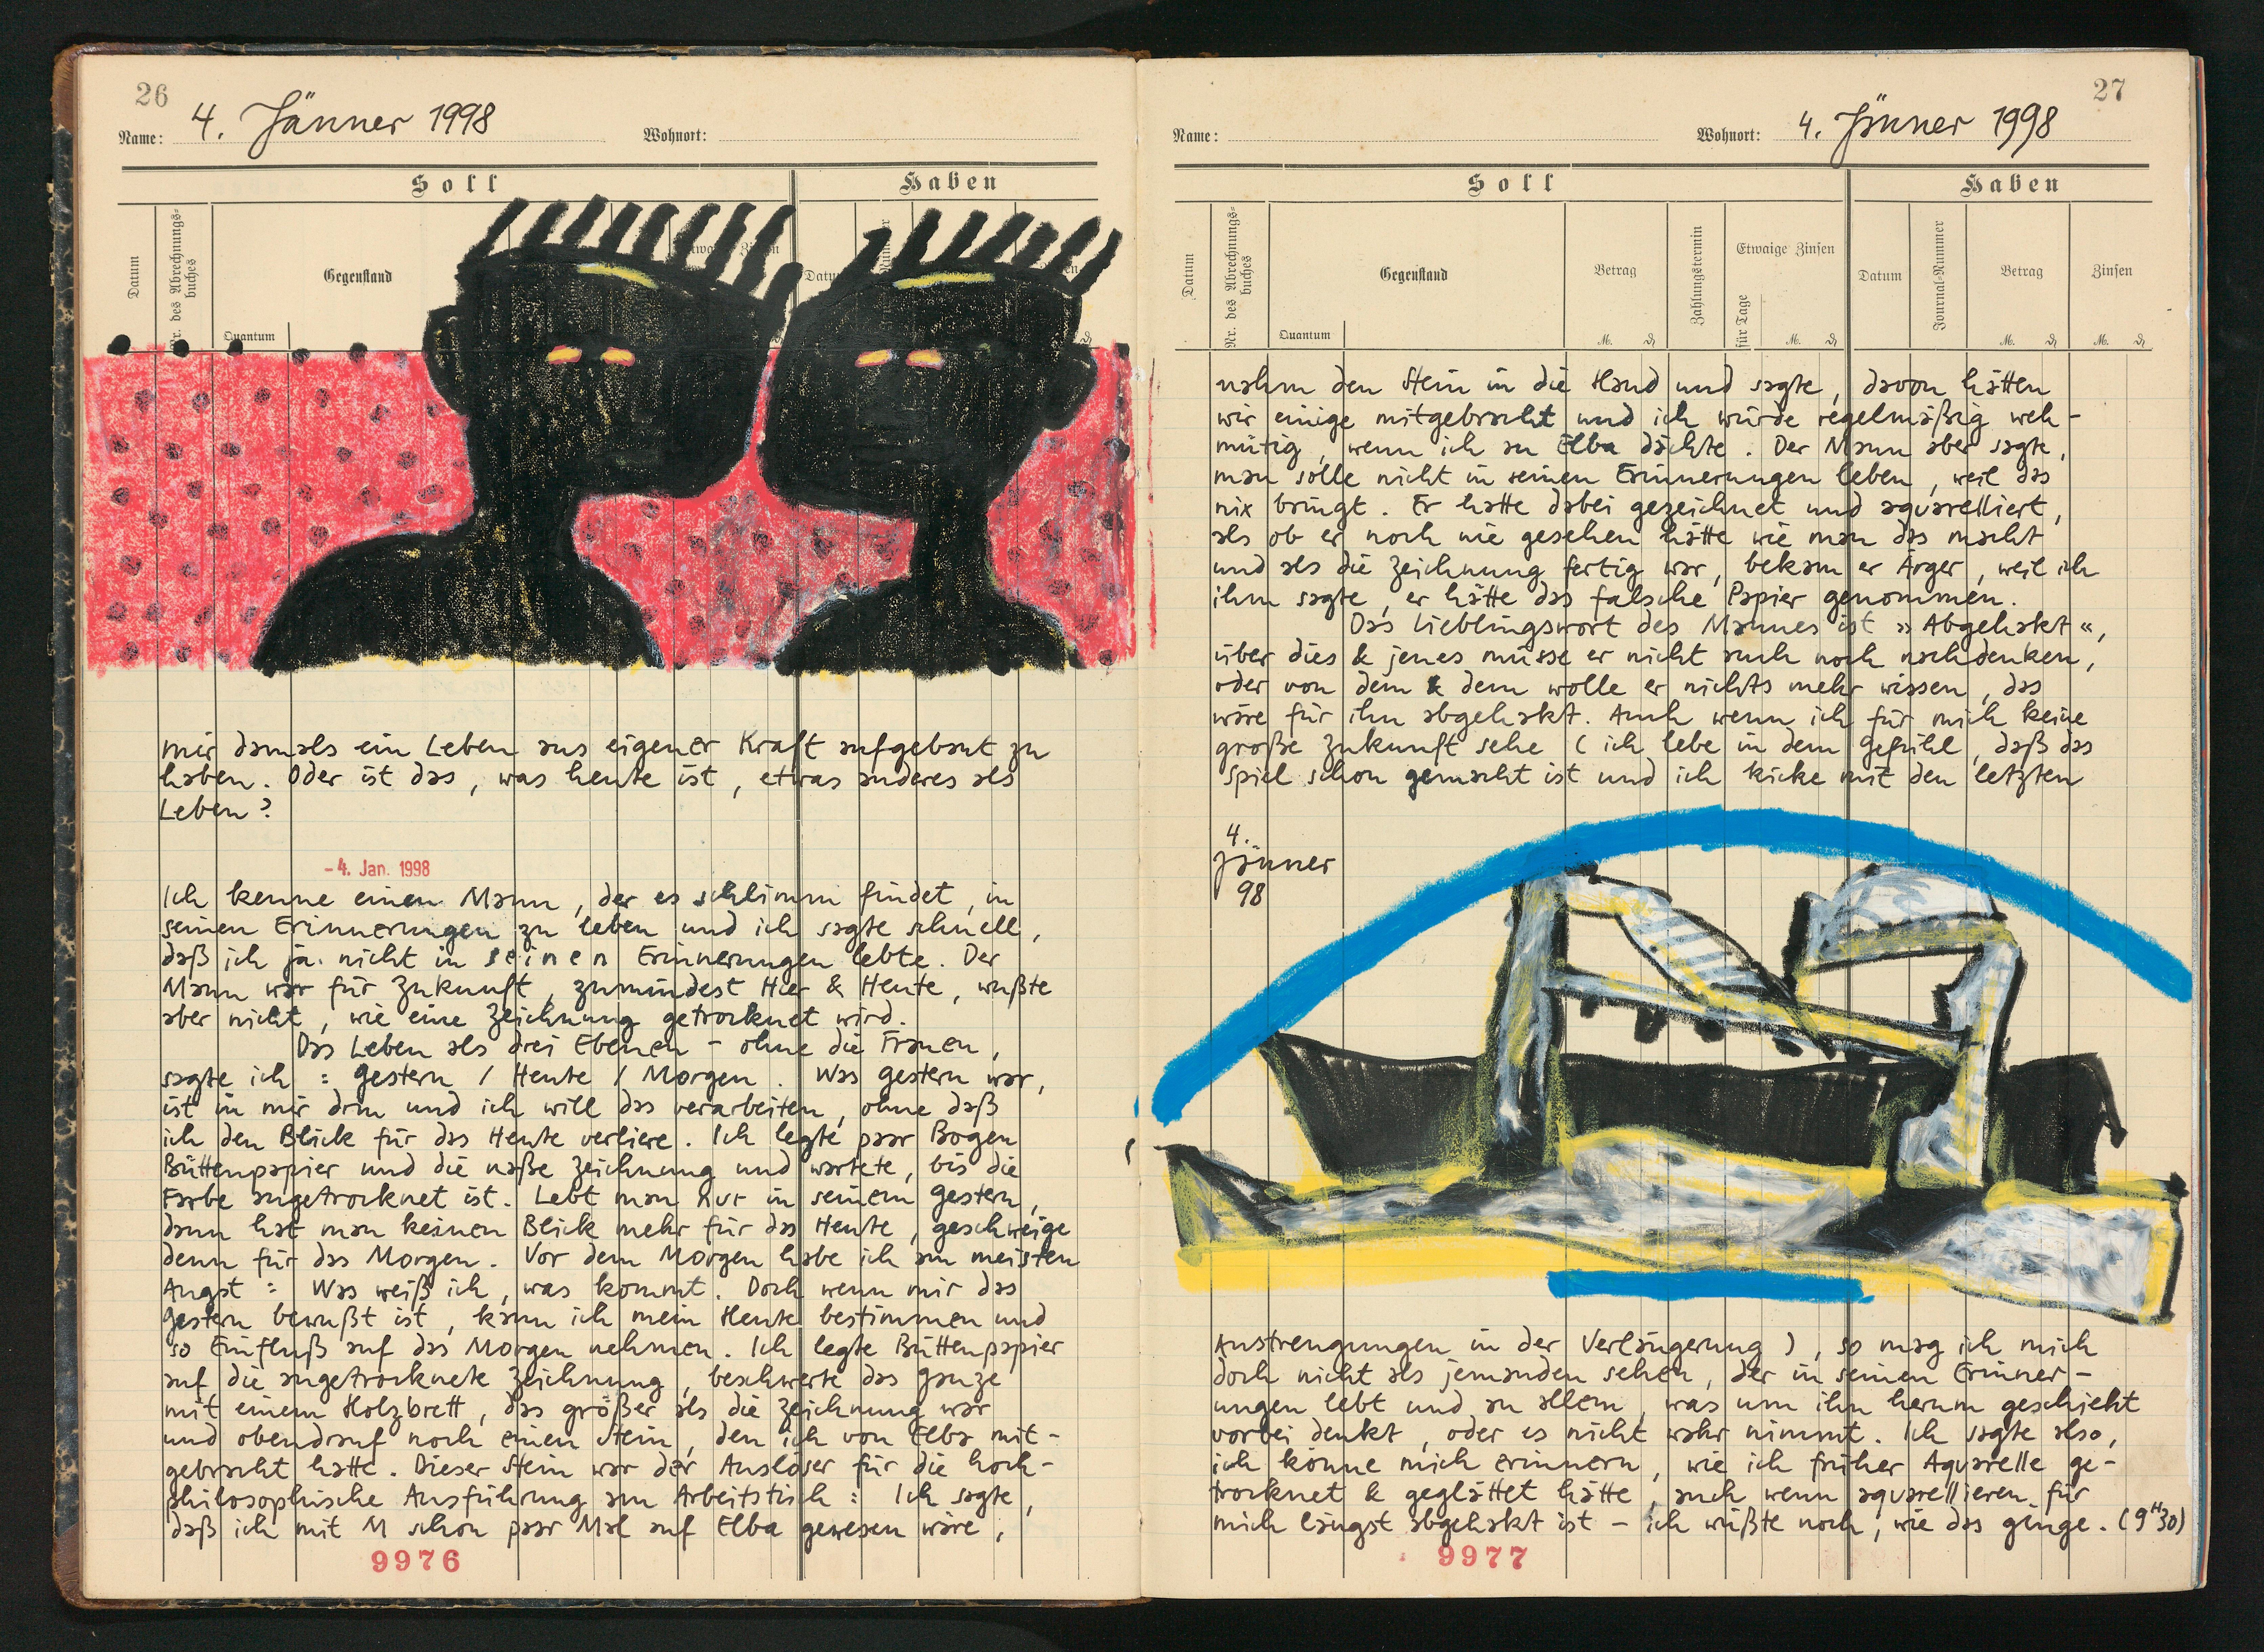 26
4. Jänner 1998
Name:
Wohnort:
Soll
Haben
Datum
Nr. des Abrechnungs-
buches
Gegenstand
Quantum
Datum
mir damals ein Leben aus eigener Kraft aufgebaut zu
haben. Oder ist das, was heute ist, etwas anderes als
Leben?
-4. Jan. 1998
Ich kenne einen Mann, der es schlimm findet, in
seinen Erinnerungen zu leben und ich sagte schnell,
daß ich ja nicht in seinen Erinnerungen lebte. Der
Mann war für Zukunft, zumindest Hier & Heute, wußte
aber nicht, wie eine Zeichnung getrocknet wird.
Das Leben als drei Ebenen - ohne die Frauen,
sagte ich: Gestern / Heute / Morgen. Was gestern war,
ist in mir drin und ich will das verarbeiten, ohne daß
ich den Blick für das Heute verliere. Ich legte paar Bogen
Büttenpapier und die naße Zeichnung und wartete, bis die
Farbe angetrocknet ist. Lebt man nur in seinem Gestern,
dann hat man keinen Blick mehr für das Heute, geschweige
denn für das Morgen. Vor dem Morgen habe ich am meisten
Angst: Was weiß ich, was kommt. Doch wenn mir das
Gestern bewußt ist, kann ich mein Heute bestimmen und
so Einfluß auf das Morgen nehmen. Ich legte Büttenpapier
auf die angetrocknete Zeichnung, beschwerte das ganze
mit einem Holzbrett, das größer als die Zeichnung war
und obendrauf noch einen Stein, den ich von Elba mit-
gebracht hatte. Dieser Stein war der Auslöser für die hoch-
philosophische Ausführung am Arbeitstisch: Ich sagte,
daß ich mit M schon paar Mal auf Elba gewesen wäre,
9976
27
Name:
Wohnort:
4. Jänner 1998
Soll
Haben
Datum
Nr. des Abrechnungs-
buches
Gegenstand
Quantum
Betrag
M. ₰
Zahlungstermin
Etwaige Zinsen
für Tage
M. ₰
Datum
Journal-Nummer
Betrag
M. ₰
Zinsen
M. ₰
nahm den Stein in die Hand und sagte, davon hätten
wir einige mitgebracht und ich würde regelmäßig weh-
mütig, wenn ich an Elba dächte. Der Mann aber sagte,
man solle nicht in seinen Erinnerungen leben, weil das
nix bringt. Er hatte dabei gezeichnet und aquarelliert,
als ob er noch nie gesehen hätte wie man das macht
und als die Zeichnung fertig war, bekam er Ärger, weil ich
ihm sagte, er hätte das falsche Papier genommen.
Das Lieblingswort des Mannes ist »Abgehakt«,
über dies & jenes müsse er nicht auch noch nachdenken,
oder von dem & dem wolle er nichts mehr wissen, das
wäre für ihn abgehakt. Auch wenn ich für mich keine
große Zukunft sehe (ich lebe in dem Gefühl, daß das
Spiel schon gemacht ist und ich kicke mit den letzten
4.
Jänner
98
Anstrengungen in der Verlängerung), so mag ich mich
doch nicht als jemanden sehen, der in seinen Erinner-
ungen lebt und an allem, was um ihn herum geschieht
vorbei denkt, oder es nicht wahr nimmt. Ich sagte also,
ich könne mich erinnern, wie ich früher Aquarelle ge-
trocknet & geglättet hätte, auch wenn aquarellieren für
mich längst abgehakt ist - ich wüßte noch, wie das ginge. (9H30)
9977